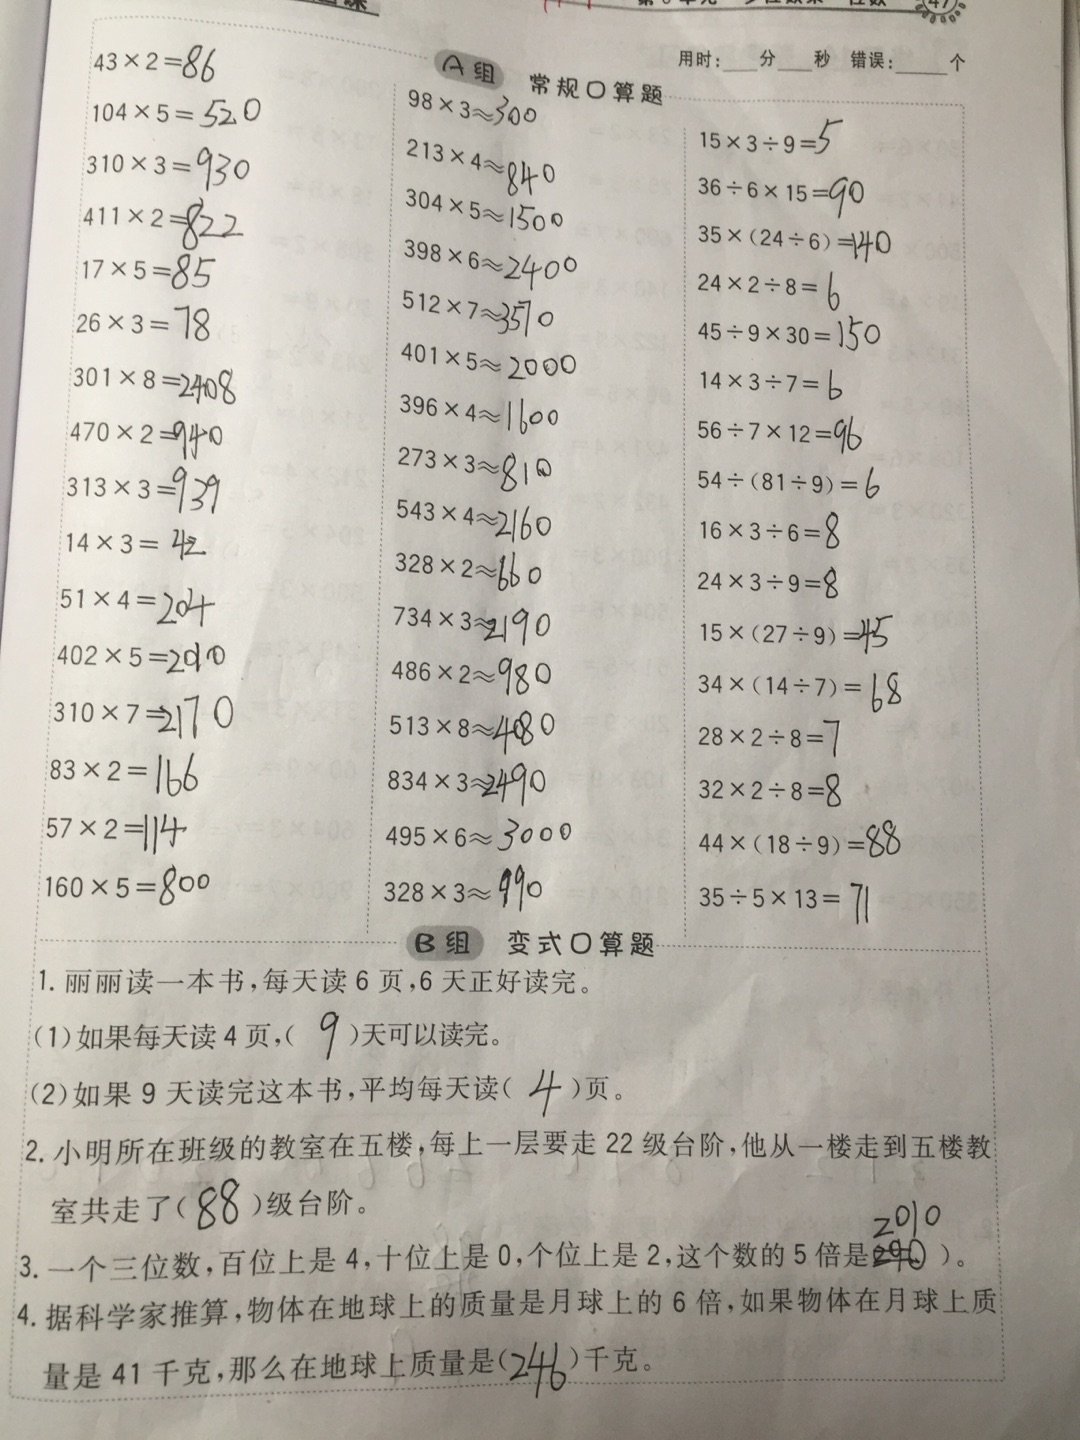 47
用时:____分____秒 错误:_____个
A组 常规口算题
43×2=86
104×5=520
310×3=930
411×2=822
17×5=85
26×3=78
301×8=2408
470×2=940
313×3=939
14×3=42
51×4=204
402×5=2010
310×7=2170
83×2=166
57×2=114
160×5=800
98×3≈300
213×4≈840
304×5≈1500
398×6≈2400
512×7≈3570
401×5≈2000
396×4≈1600
273×3≈810
543×4≈2160
328×2≈660
734×3≈2190
486×2≈980
513×8≈4080
834×3≈2490
495×6≈3000
328×3≈990
15×3÷9=5
36÷6×15=90
35×(24÷6)=140
24×2÷8=6
45÷9×30=150
14×3÷7=6
56÷7×12=96
54÷(81÷9)=6
16×3÷6=8
24×3÷9=8
15×(27÷9)=45
34×(14÷7)=68
28×2÷8=7
32×2÷8=8
44×(18÷9)=88
35÷5×13=71
B组 变式口算题
1. 丽丽读一本书,每天读6页,6天正好读完。
(1)如果每天读4页,( 9 )天可以读完。
(2)如果9天读完这本书,平均每天读( 4 )页。
2. 小明所在班级的教室在五楼,每上一层要走22级台阶,他从一楼走到五楼教
室共走了( 88 )级台阶。
2010
3. 一个三位数,百位上是4,十位上是0,个位上是2,这个数的5倍是 )。
4. 据科学家推算,物体在地球上的质量是月球上的6倍,如果物体在月球上质
量是41千克,那么在地球上质量是(246)千克。